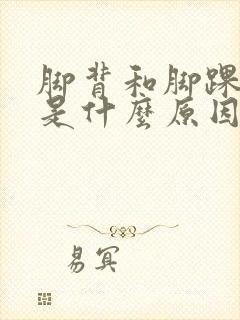 脚背和脚踝
是什麼原因
易冥